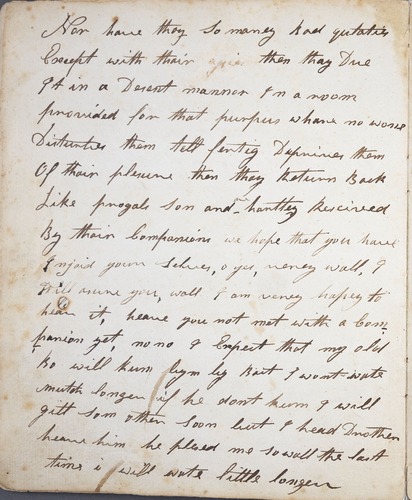 Nor have thay so maney Bad qutaties
Except with thair then thay Due
It in a Desent manner In a room
provided for that purpus whare no worse
Disturbes them tell fertig Deprives them
Of thair plesure then thay Return Back
Like progals son and hartley Reseived
By thair Companions we hope that you have
Injoid youre Selves, o yes, verey wall, I
will asure you, wall I am verey hapey to
hear it, heave you not met with a Com-
panion yet, no no I Expect that my old
Bo will kum bym by But I wont wate
mutch longer if he dont kum I will
gitt som other soon but I head Druther
heave him he plesed me so wall the last
time i will wate little longer